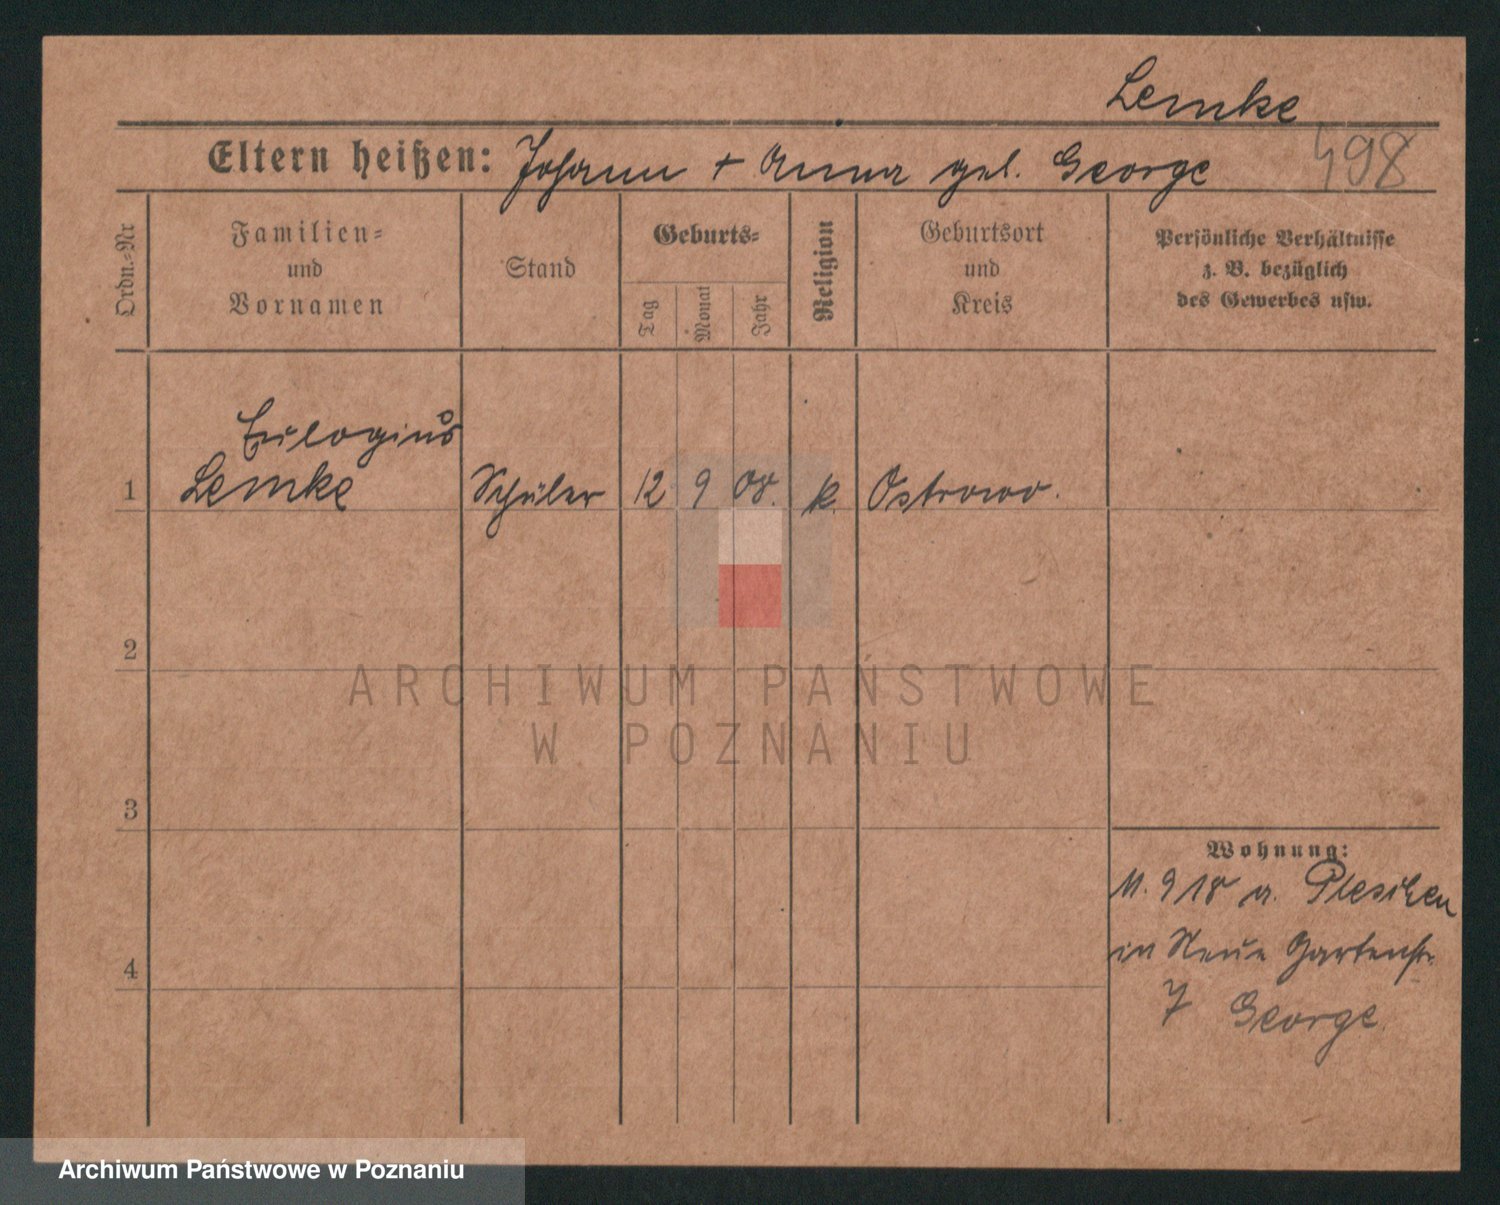 Lemke
Eltern heißen: Johann + Anna geb. George 498
Ordn.-Nr
Familien-
und
Vornamen
Stand
Geburts-
Tag
Monat
Jahr
Religion
Geburtsort
und
Kreis
Persönliche Verhältnisse
z. B. bezüglich
des Gewerbes usw.
Eulogius
1 Lemke Schüler 12 9 08. k. Ostrowo.
2
3
4
Wohnung:
11. 9 18 a. Pleschen
in Neue Gartenstr.
7 George.
ARCHIWUM PAŃSTWOWE
W POZNANIU
Archiwum Państwowe w Poznaniu